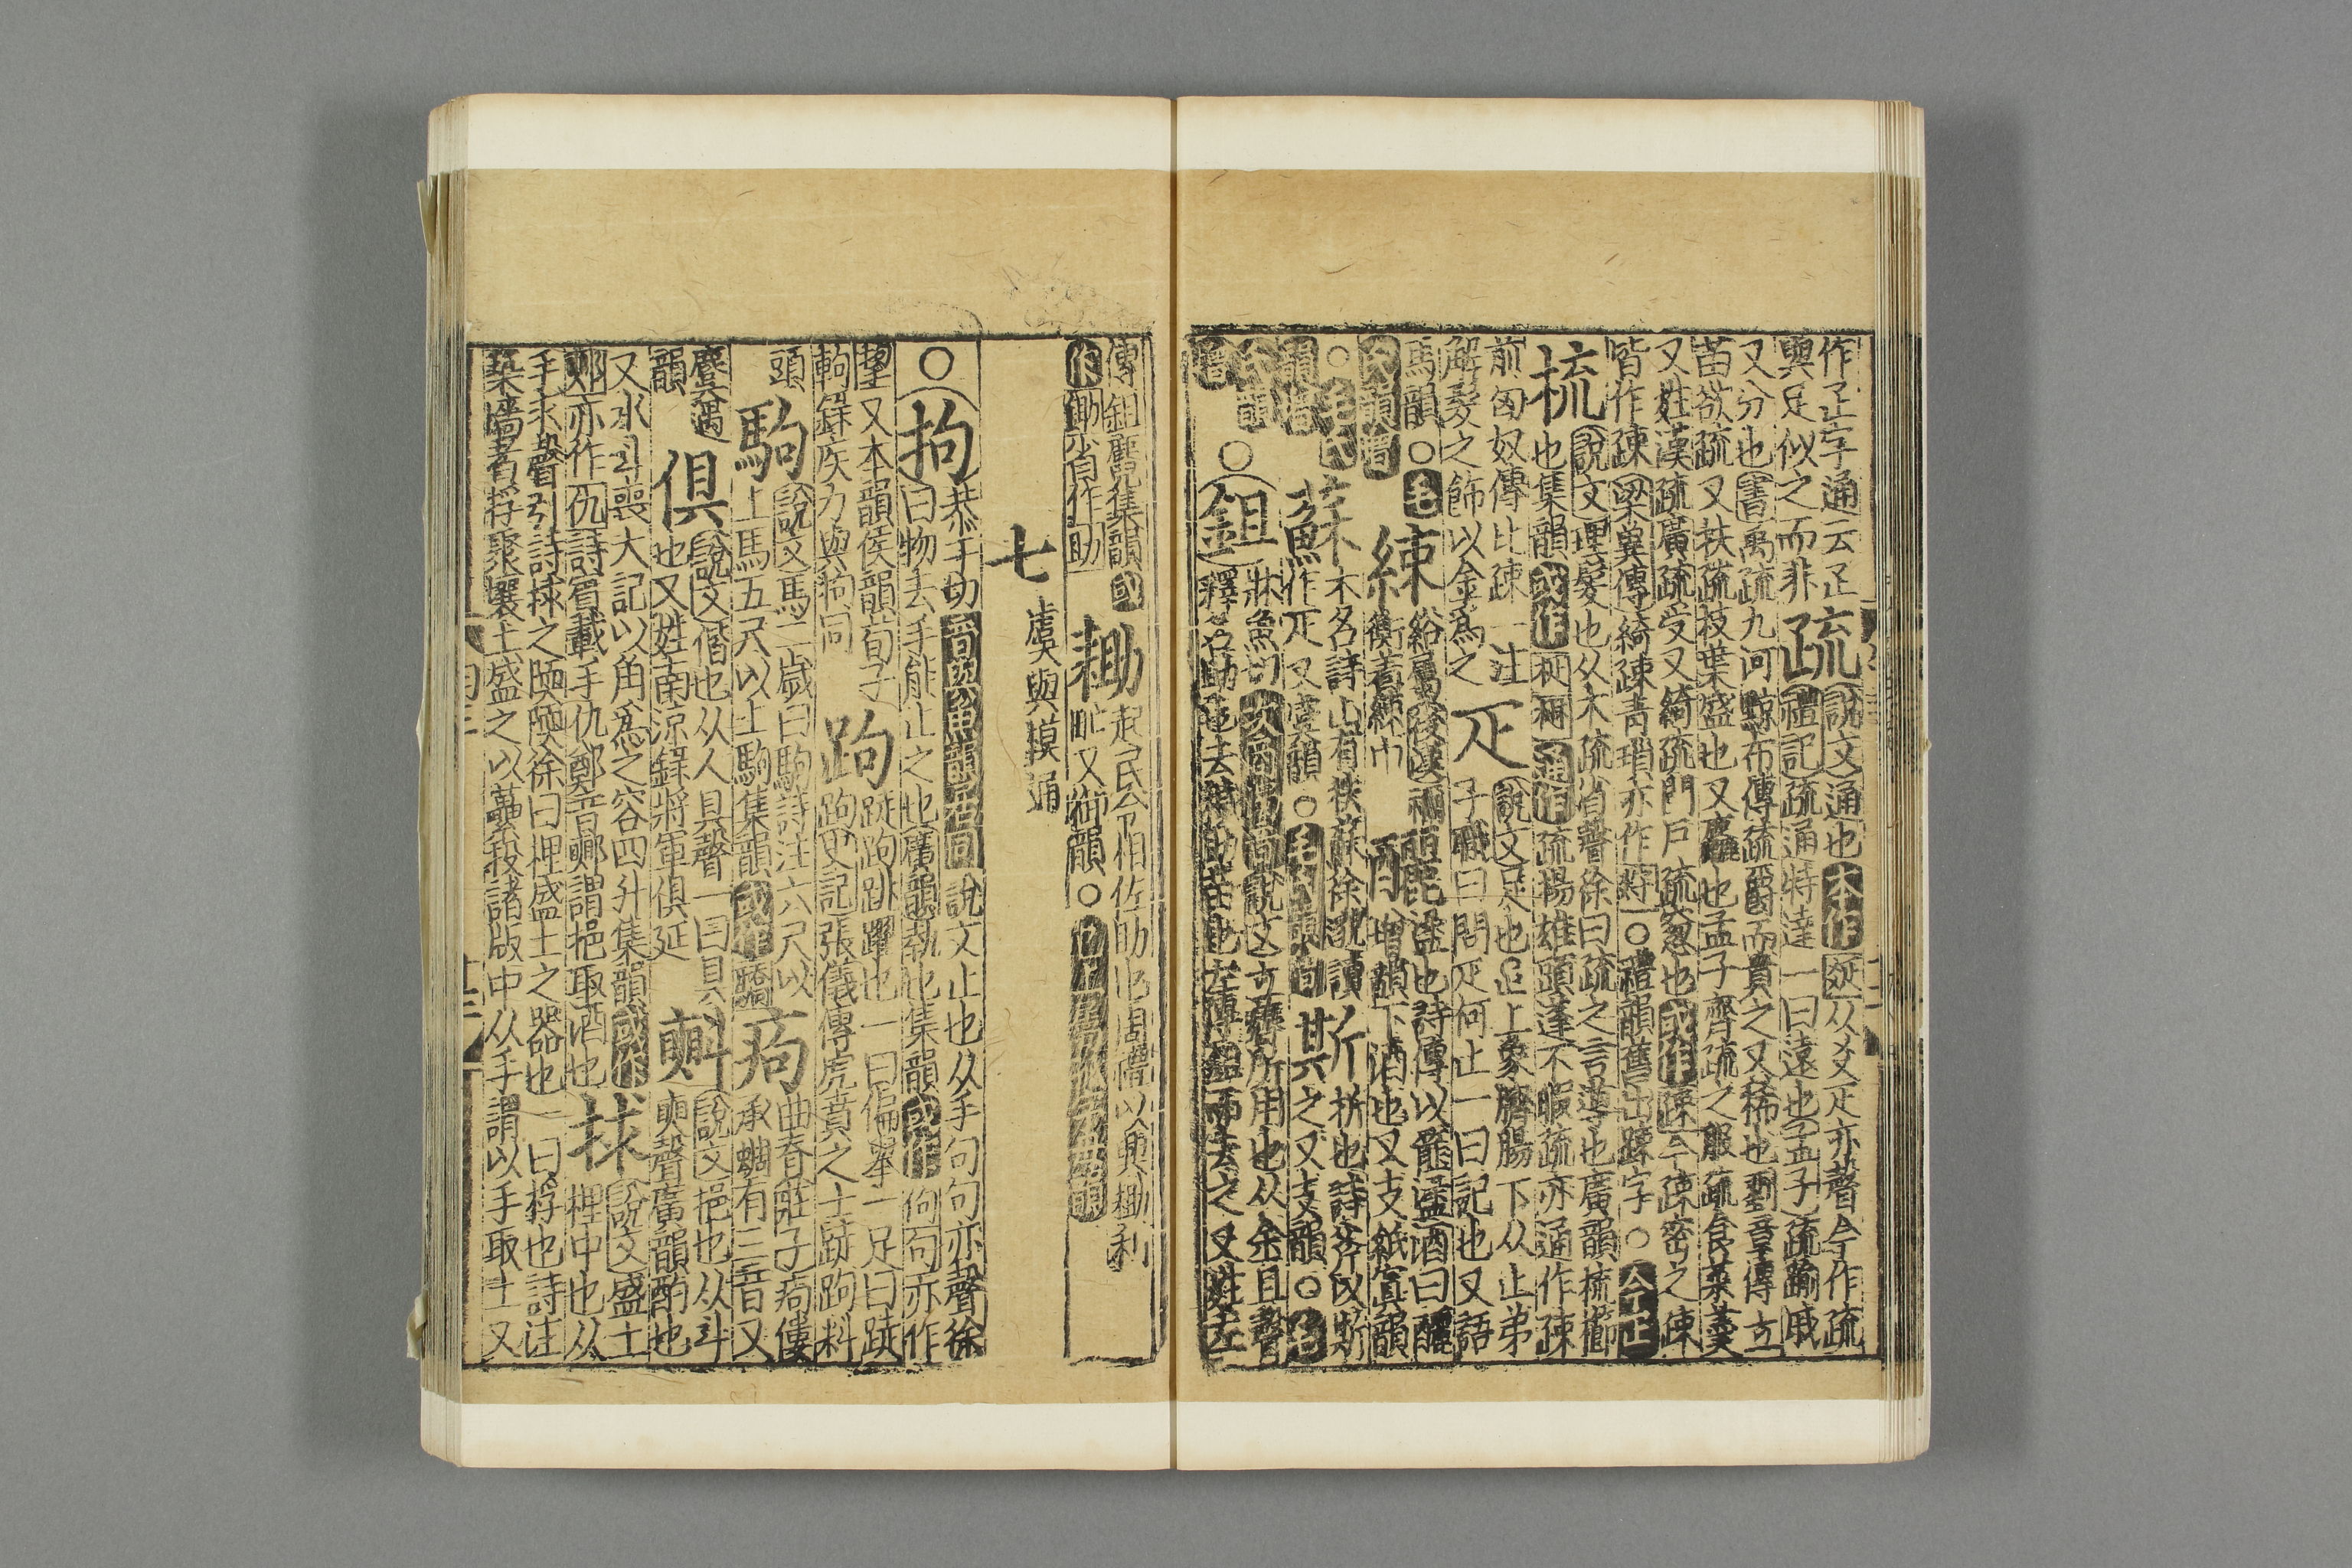 作𤴓字通云𤴓
與足似之而非
疏
說文通也本作䟽从㐬疋亦聲今作疏
禮記疏通特達一曰遠也孟子疏踰戚
又分也書禹疏九河黥布傳疏爵而貴之又稀也劉章傳立
苗欲疏又扶疏枝葉盛也又麤也孟子齊疏之服疏食菜羹
又姓漢疏廣疏受又綺疏門戶疏窓也或作疎今疎密之疎
皆作疎梁冀傳綺疎青瑣亦作𤕟○禮韻舊出踈字○今正
梳
說文理髮也从木疏省聲徐曰疏之言導也廣韻梳櫛
也集韻或作 通作疏揚雄頭蓬不暇疏亦通作疎
前匈奴傳比疎一注
解髮之飾以金爲之
疋
說文足也 上象腓腸下从止弟
子職曰問疋何止一曰記也又語
馬韻○毛
氏韻增
練
紛屬後漢禰
衡著練巾
釃
盪也詩傳以筐盪酒曰釃
增韻下酒也又支紙寘韻
○毛氏
韻增
蘇
木名詩山有扶蘇徐邈讀
作疋又虞韻○毛氏韻增
斯
析也詩斧以斯
之又支韻○毛
氏韻
增
○鉏
牀魚切次商濁音說文立薅所用也从金且聲
釋名助也去穢助苗也左傳鉏而去之又姓左
傳鉏麑集韻或
作鋤省作助
耡
起民令相佐助也周禮以興耡利
甿又御韻○
七 虞與模通
○拘
恭于切音與魚韻居同說文止也从手句句亦聲徐
曰物去手能止之也廣韻執也集韻或作佝句亦作
𢫾又本韻侯韻荀子
軥錄疾力與拘同
跔
跿跔跳躍也一曰偏舉一足曰跿
跔史記張儀傳虎賁之士跿跔科
頭
駒
說文馬二歲曰駒詩注六尺以
上馬五尺以上駒集韻或作驕
痀
曲脊莊子痀僂
承蜩有三音又
麌遇
韻
俱
說文偕也从人具聲一曰具
也又姓南涼錄將軍俱延
𣂁
說文挹也从斗
奭聲廣韻酌也
又水斗喪大記以角爲之容四升集韻或作
𣂏亦作仇詩賓載手仇鄭音𣂁謂挹取酒也
捄
說文盛土
梩中也从
手求聲引詩捄之陾陾徐曰梩盛土之器也一曰捊也詩注
築牆者捊聚壤土盛之以虆投諸版中从手謂以手取土又